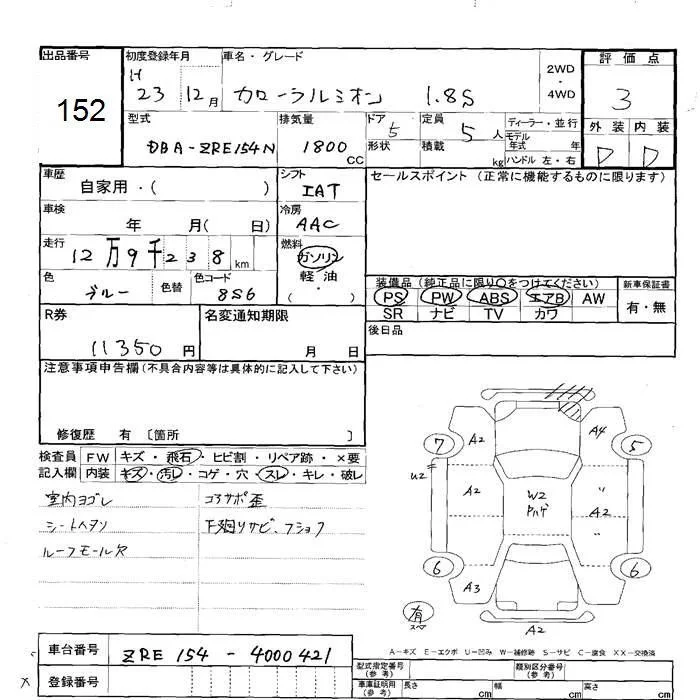 出品番号 初度登録年月 車名・グレード 評価点
152
H 23 12月 カローラルミオン 1.8S 2WD・4WD 3
型式 排気量 ドア 定員 ディーラー・並行 外装 内装
DBA-ZRE154N 1800 CC 5 形状 5人 積載 kg モデル年式 年 ハンドル 左・右 D D
車歴 シフト セールスポイント (正常に機能するものに限ります)
自家用・( ) IAT
車検 冷房
年 月( 日) AAC
走行 燃料
12万9千238km ガソリン
軽油
・
( )
色 色替 色コード 装備品(純正品に限り○をつけてください) 新車保証書
ブルー 8S6 PS PW ABS エアB AW 有・無
SR ナビ TV カワ
R券 名変通知期限 後日品
11350円 月 日
注意事項申告欄(不具合内容等は具体的に記入して下さい)
修復歴 有 〔箇所 〕
検査員 FW キズ・飛石・ヒビ割・リペア跡・×要
記入欄 内装 キズ・汚レ・コゲ・穴・スレ・キレ・破レ
室内ヨゴレ コアサポ歪
シートヘタリ 下廻りサビ、フショク
ルーフモール欠
7 A2 A4 5
U2 A2 W2 A2
6 A3 6
有 スペア A2
A-キズ E-エクボ U-凹み W-補修跡 S-サビ C-腐食 XX-交換済
車台番号 ZRE 154 - 4000421
登録番号
型式指定番号(参考) 類別区分番号(参考)
車庫証明用(参考) 長さ cm 幅 cm 高さ cm
X